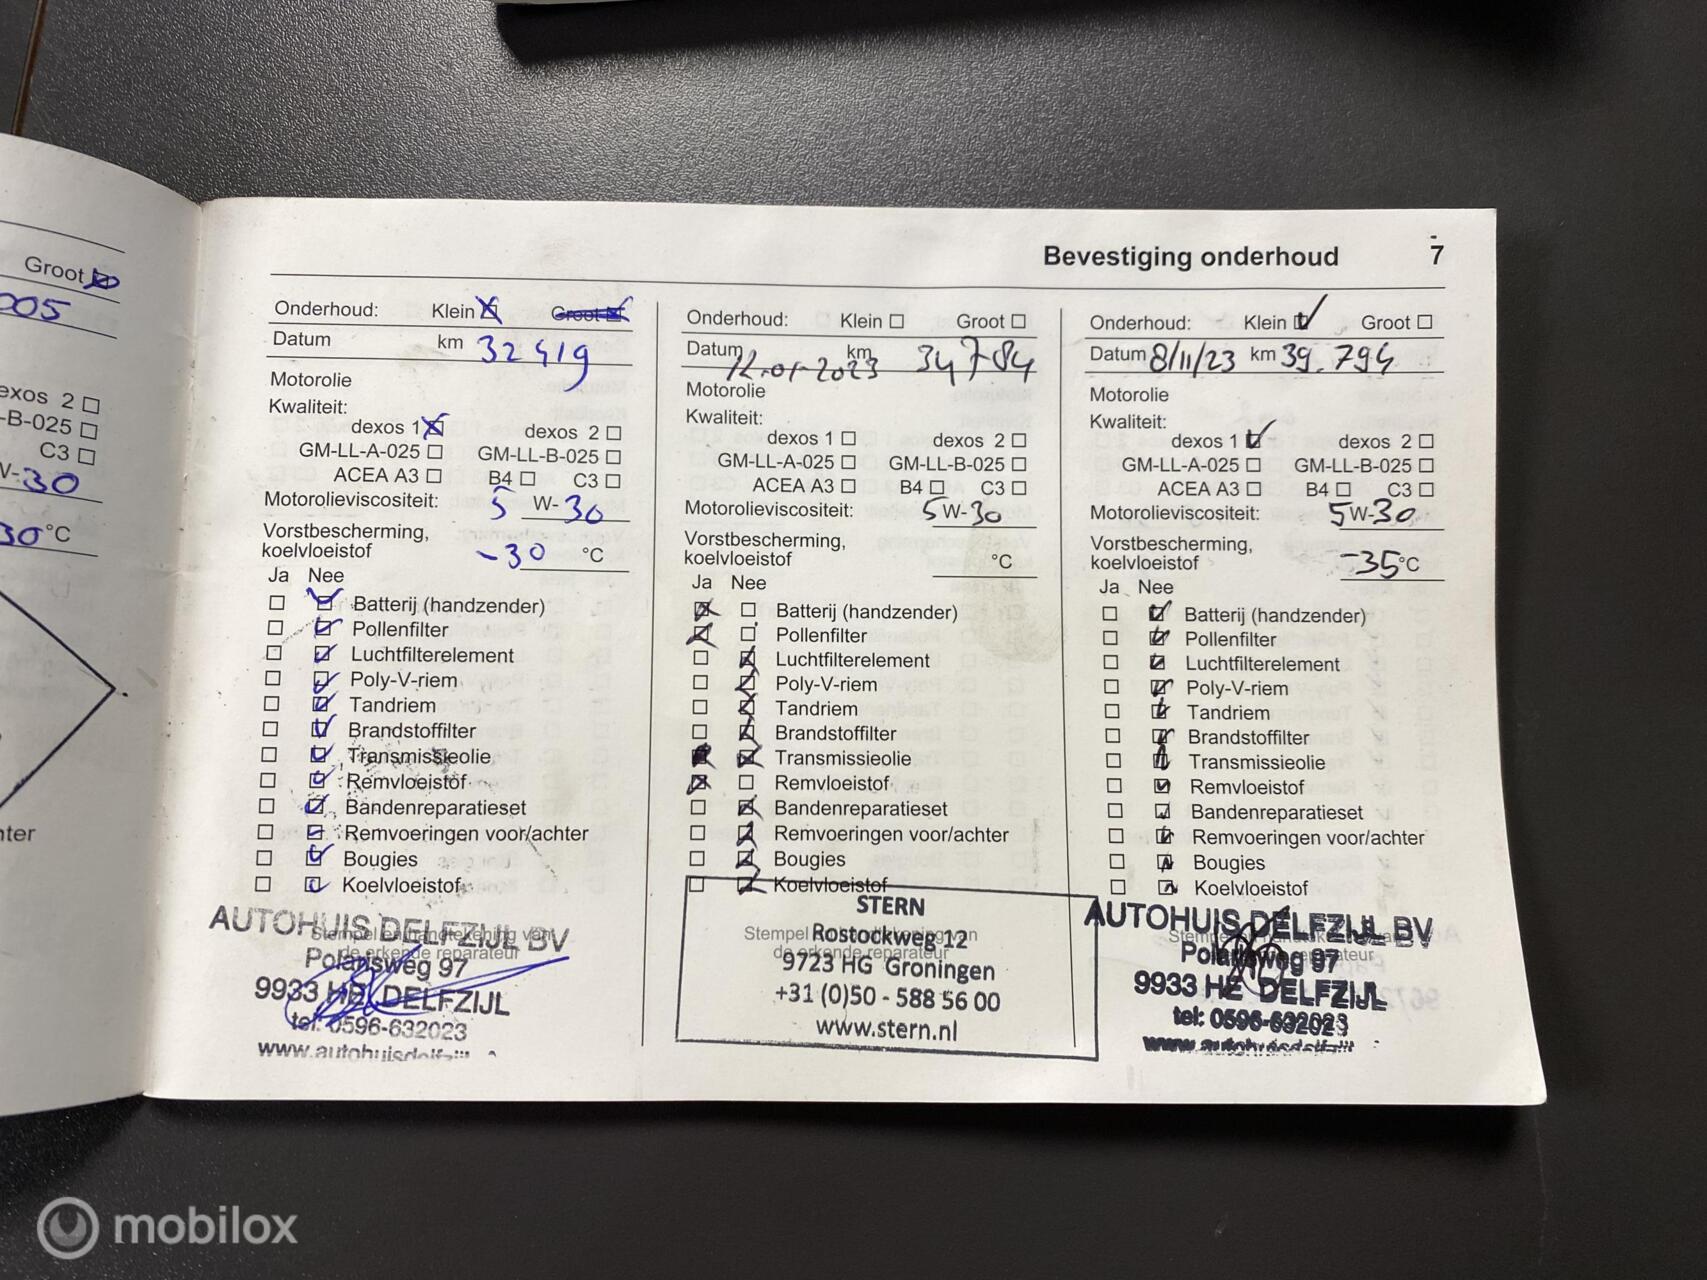 Groot
005
dexos 2
L-B-025
C3
W-30
30 °C
Bevestiging onderhoud 7
Onderhoud: Klein Groot
Datum km 32419
Motorolie
Kwaliteit:
dexos 1 dexos 2
GM-LL-A-025 GM-LL-B-025
ACEA A3 B4 C3
Motorolieviscositeit: 5 W-30
Vorstbescherming,
koelvloeistof -30 °C
Ja Nee
Batterij (handzender)
Pollenfilter
Luchtfilterelement
Poly-V-riem
Tandriem
Brandstoffilter
Transmissieolie
Remvloeistof
Bandenreparatieset
Remvoeringen voor/achter
Bougies
Koelvloeistof
Stempel en handtekening van
de erkende reparateur
AUTOHUIS DELFZIJL BV
Polarisweg 97
9933 HE DELFZIJL
tel: 0596-632023
Onderhoud: Klein Groot
Datum 12-01-2023 km 34784
Motorolie
Kwaliteit:
dexos 1 dexos 2
GM-LL-A-025 GM-LL-B-025
ACEA A3 B4 C3
Motorolieviscositeit: 5W-30
Vorstbescherming,
koelvloeistof °C
Ja Nee
Batterij (handzender)
Pollenfilter
Luchtfilterelement
Poly-V-riem
Tandriem
Brandstoffilter
Transmissieolie
Remvloeistof
Bandenreparatieset
Remvoeringen voor/achter
Bougies
Koelvloeistof
Stempel en handtekening van
de erkende reparateur
STERN
Rostockweg 12
9723 HG Groningen
+31 (0)50 - 588 56 00
www.stern.nl
Onderhoud: Klein Groot
Datum 8/11/23 km 39.794
Motorolie
Kwaliteit:
dexos 1 dexos 2
GM-LL-A-025 GM-LL-B-025
ACEA A3 B4 C3
Motorolieviscositeit: 5W-30
Vorstbescherming,
koelvloeistof -35 °C
Ja Nee
Batterij (handzender)
Pollenfilter
Luchtfilterelement
Poly-V-riem
Tandriem
Brandstoffilter
Transmissieolie
Remvloeistof
Bandenreparatieset
Remvoeringen voor/achter
Bougies
Koelvloeistof
AUTOHUIS DELFZIJL BV
Polarisweg 97
9933 HE DELFZIJL
tel: 0596-632023
mobilox